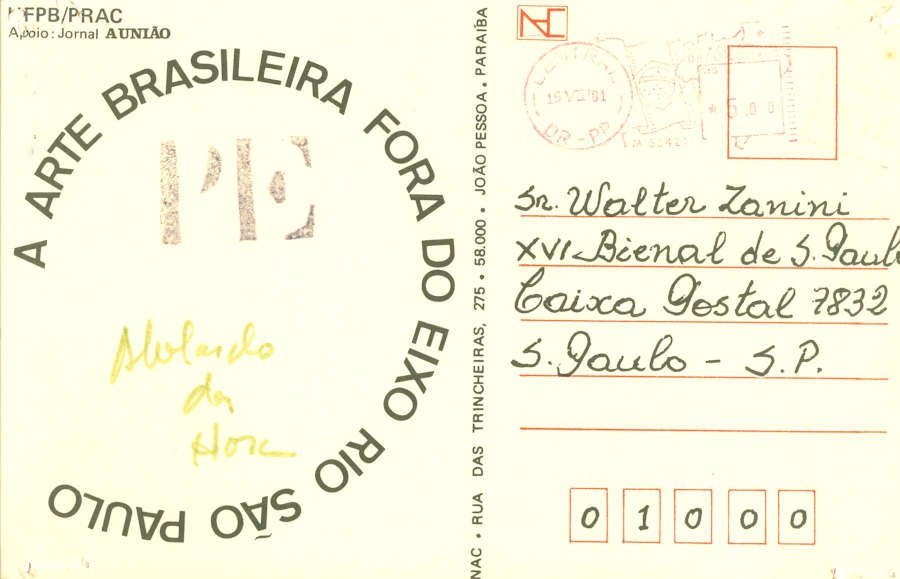 UFPB/PRAC
Apoio: Jornal A UNIÃO
A ARTE BRASILEIRA FORA DO EIXO RIO SÃO PAULO
PE
Abelardo
da
Hora
NAC • RUA DAS TRINCHEIRAS, 275 • 58.000 • JOÃO PESSOA • PARAÍBA
NAC
CENTRAL
DR-PB
5.00
Sr. Walter Zanini
XVI Bienal de S. Paulo
Caixa Postal 7832
S. Paulo - S.P.
0 1 0 0 0